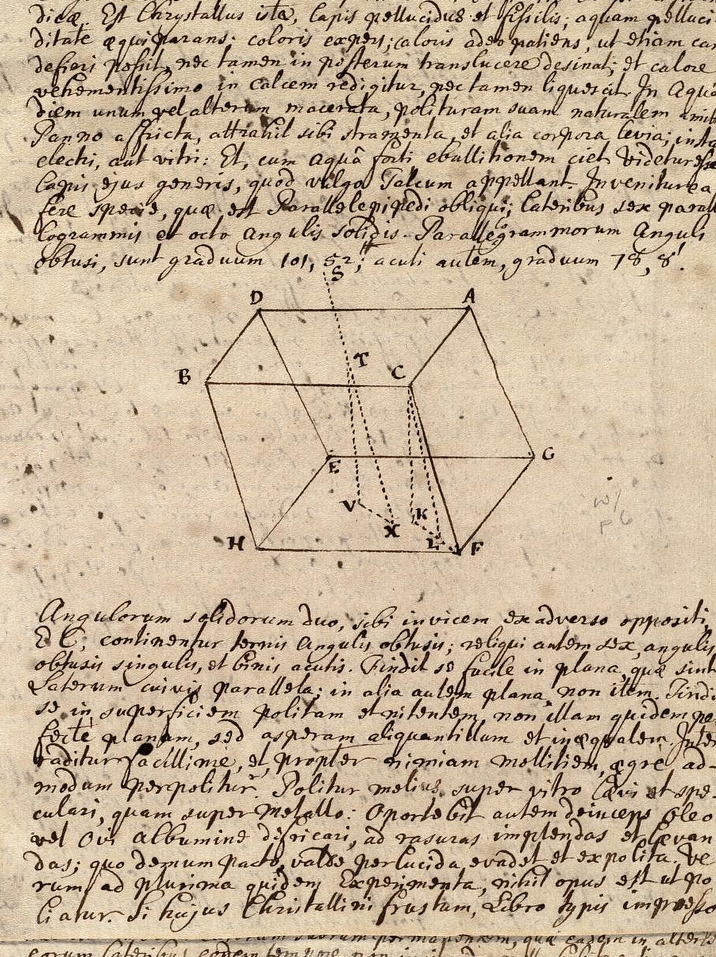 dicæ. Est Chrystallus ista, lapis pellucidus et fissilis; aquam pelluci-
ditate æquiparans: coloris expers; caloris adeo patiens, ut etiam can
defieri possit, nec tamen in posterum translucere desinat; et calore
vehementissimo in calcem redigitur, nec tamen liquescit. In Aqua
diem unum vel alterum macerata, polituram suam naturalem amit
Panno affricta, attrahit sibi stramenta, et alia corpora levia; insta
electri, aut vitri: Et, cum aquâ forti ebullitionem ciet. Videtur esse
lapis ejus generis, quod vulgo Talcum appellant. Invenitur ea
fere specie, quæ est Parallelepipedi obliqui; lateribus sex parall
logrammis et octo angulis solidis. Parallelogrammorum Anguli
obtusi, sunt graduum 101, 52'; acuti autem, graduum 78, 8'.
S
D A
T
B C
E G
V K
X
H L F
Angulorum solidorum duo, sibi invicem ex adverso oppositi,
E C, continentur ternis Angulis obtusis; reliqui autem sex, angulis
obtusis singulis, et binis acutis. Findit se facile in plana, quæ sint
Laterum cuivis parallela; in alia autem plana, non item. Findi
se in superficiem politam et nitentem, non illam quidem pe
fecte planam, sed asperam aliquantillum et inæqualem. Inter
raditur facillime, et propter nimiam mollitiem, ægre ad-
modum perpolitur. Politur melius super vitro lævi et spe-
culari, quam super Metallo. Oportebit autem deinceps oleo
vel Ovi albumine defricari, ad rasuras implendas et lævan
das; quo demum pacto, valde perlucida evadet et expolita. Ve
rum ad plurima quidem Experimenta, nihil opus est ut po
liatur. Si hujus Christallini frustum, Libro typis impresso